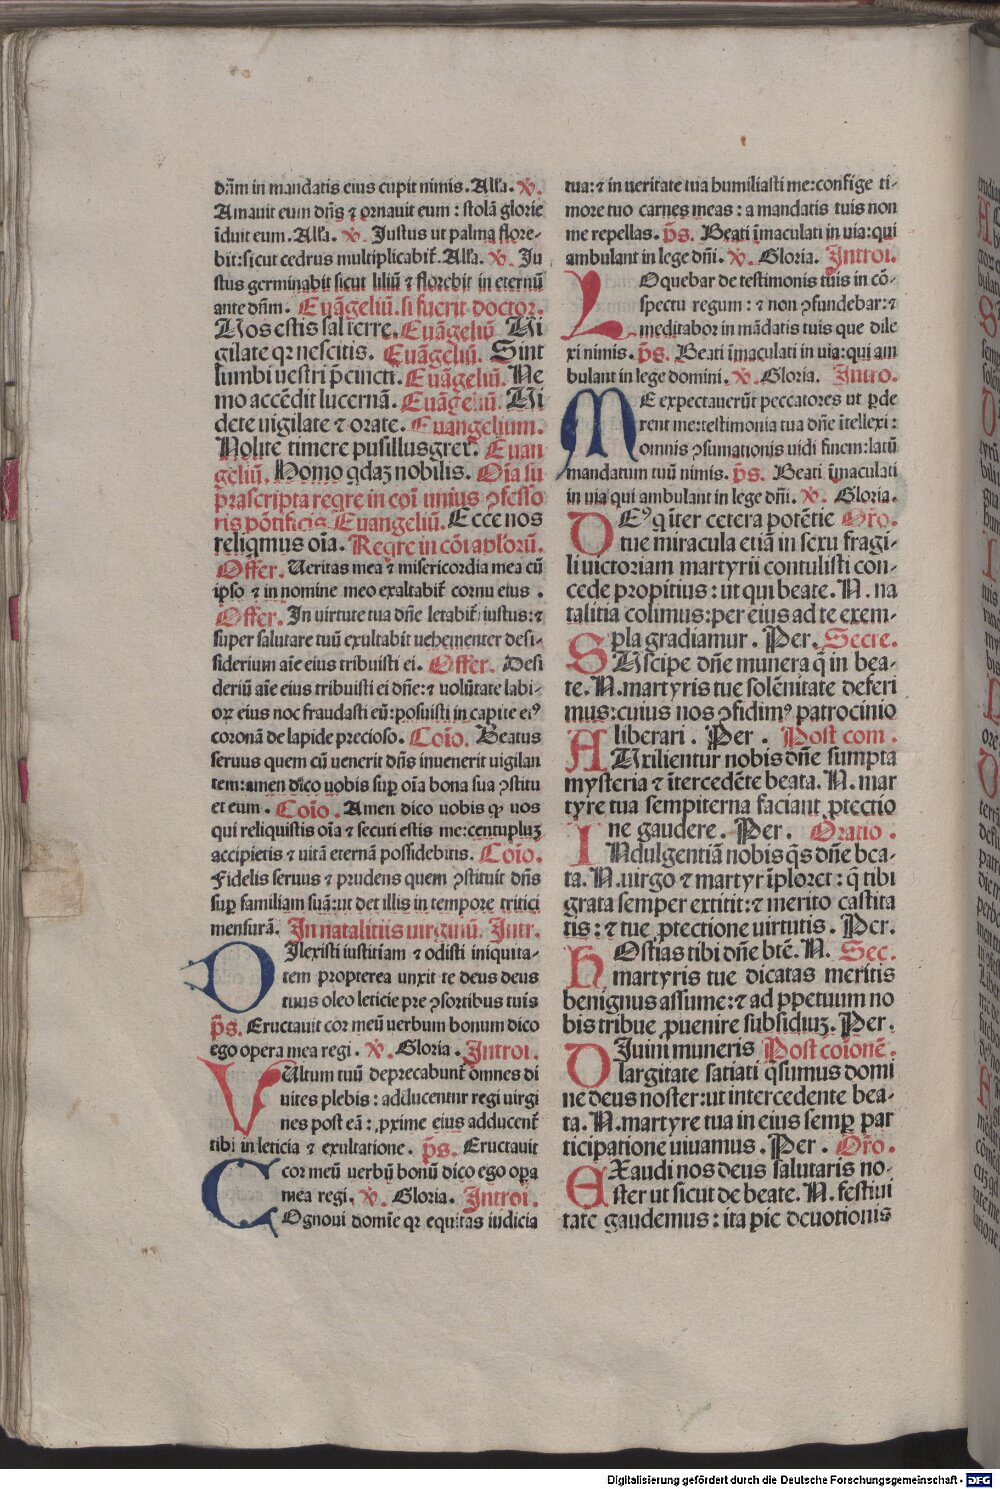 dn̄m in mandatis eius cupit nimis. Allā. ꝟ.
Amauit eum dn̄s ⁊ ornauit eum : stolā glorie
īduit eum. Allā. ꝟ. Justus ut palma flore-
bit: sicut cedrus multiplicabit̄. Allā. ꝟ. Ju
stus germinabit sicut liliū ⁊ florebit in eternū
ante dn̄m. Euāgeliū. si fuerit doctor.
Uos estis sal terre. Euāgeliū Ui
gilate qꝛ nescitis. Euāgeliū. Sint
lumbi uestri p̄cincti. Euāgeliū. Ne
mo accēdit lucernā. Euāgeliū. Ui
dete uigilate ⁊ orate. Euangelium.
Nolite timere pusillus gret. Euan
geliū. Homo qdaꝫ nobilis. Oīa su
prascripta reqre in coī unius ꝯfesso
ris pōtificis Euangeliū. Ecce nos
reliqmus oīa. Reqre in cōi aplōrū.
Offer. Ueritas mea ⁊ misericordia mea cū
ipso ⁊ in nomine meo exaltabit̄ cornu eius .
Offer. In uirtute tua dn̄e letabit̄ iustus: ⁊
super salutare tuū exultabit uehementer desi-
siderium aīe eius tribuisti ei. Offer. Desi
deriū aīe eius tribuisti ei dn̄e: ⁊ uolūtate labi-
oꝝ eius noc fraudasti eū: posuisti in capite eiꝰ
coronā de lapide precioso. Coīo. Beatus
seruus quem cū uenerit dn̄s inuenerit uigilan
tem: amen dico uobis sup̄ oīa bona sua ꝯstitu
et eum . Coīo. Amen dico uobis qꝫ uos
qui reliquistis oīa ⁊ secuti estis me: centupluꝫ
accipietis ⁊ uitā eternā possidebitis. Coīo.
Fidelis seruus ⁊ prudens quem ꝯstituit dn̄s
sup̄ familiam suā: ut det illis in tempore tritici
mensurā. In natalitiis uirginū. Intr.
DIlexisti iustitiam ⁊ odisti iniquita-
tem propterea unxit te deus deus
tuus oleo leticie pre ꝯsortibus tuis
p̄s. Eructauit cor meū uerbum bonum dico
ego opera mea regi . ꝟ. Gloria . Introi.
VUltum tuū deprecabunt̄ omnes di
uites plebis : adducentur regi uirgi
nes post eā : ꝓxime eius adducent̄
tibi in leticia ⁊ exultatione . p̄s. Eructauit
cor meū uerbū bonū dico ego opa̱
mea regi. ꝟ. Gloria. Introi.
COgnoui domīe qꝛ equitas iudicia
tua: ⁊ in ueritate tua humiliasti me: confige ti-
more tuo carnes meas : a mandatis tuis non
me repellas. p̄s. Beati īmaculati in uia: qui
ambulant in lege dn̄i. ꝟ. Gloria. Introi.
LOquebar de testimonis tuis in cō-
spectu regum : ⁊ non ꝯfundebar: ⁊
meditabor in mādatis tuis que dile
xi nimis. p̄s. Beati īmaculati in uia: qui am
bulant in lege domini. ꝟ. Gloria. Intro.
ME expectauerūt peccatores ut ꝑde
rent me: testimonia tua dn̄e ītellexi :
omnis ꝯsumationis uidi finem: latū
mandatum tuū nimis. p̄s. Beati īmaculati
in uia qui ambulant in lege dn̄i. ꝟ. Gloria.
DEꝰ q̄ iter cetera potētie Or̄o.
tue miracula etiā in sexu fragi-
li uictoriam martyrii contulisti con-
cede propitius : ut qui beate. N. na
talitia colimus: per eius ad te exem-
pla gradiamur . Per. Secre.
SUscipe dn̄e munera q̄ in bea-
te. N. martyris tue solēnitate deferi
mus: cuius nos ꝯfidimꝰ patrocinio
liberari . Per . Post com .
AUxilientur nobis dn̄e sumpta
mysteria ⁊ ītercedēte beata. N. mar
tyre tua sempiterna faciant ꝓtectio
ne gaudere. Per. Oratio .
INdulgentiā nobis q̄s dn̄e bea-
ta. N. uirgo ⁊ martyr īploret : q̄ tibi
grata semper extitit: ⁊ merito castita
tis : ⁊ tue ꝓtectione uirtutis . Per.
HOstias tibi dn̄e btē. N. Sec.
martyris tue dicatas meritis
benignus assume: ⁊ ad ꝑpetuum no
bis tribue ꝓuenire subsidiuꝫ. Per.
DIuini muneris Post coīonē.
largitate satiati q̄sumus domi
ne deus noster: ut intercedente bea-
ta. N. martyre tua in eius semp̄ par
ticipatione uiuamus . Per . Or̄o.
EXaudi nos deus salutaris no-
ster ut sicut de beate. N. festiui
tate gaudemus : ita pie deuotionis
Digitalisierung gefördert durch die Deutsche Forschungsgemeinschaft - DFG